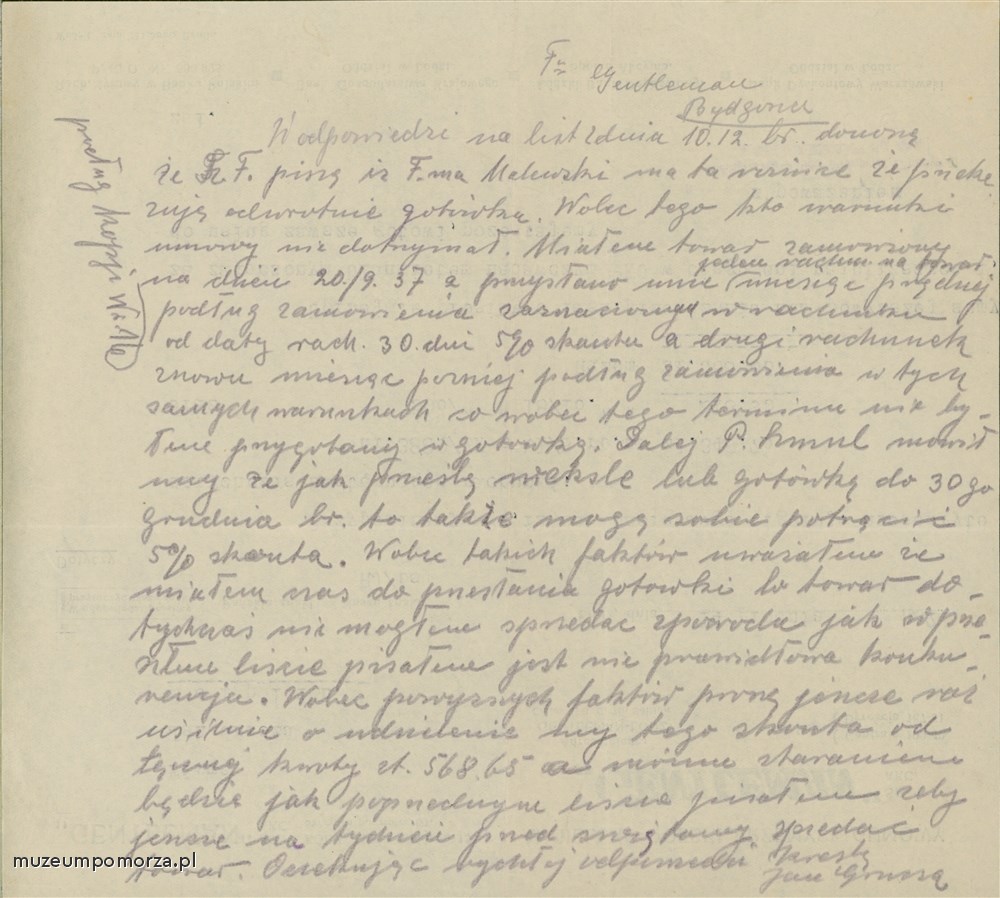 Fa Gentleman
Bydgoszcz
W odpowiedzi na list z dnia 10.12. br. donoszą
że F. piszą iż F.ma Malewski ma ta
zują odwrotnie gotówką. Wobec tego kto warunki
umowy nie dotrzymał. Miałem towar zamówiony
jeden rachun. na towar
na dzień 20./9. 37 a przysłano mnie miesiąc prędzej
podług zamówienia zaznaczonym w rachunku
od daty rach. 30. dni 5% skonta a drugi rachunek
znowu miesiąc porniej podług zamówienia w tych
samych warunkach co wobec tego terminu nie by-
łem przygotany w gotowką. Dalej P. mowił
my że jak prześlę weksle lub gotówką do 30 go
grudnia br. to także mogą sobie potrącić
5% skonta. Wobec takich faktów uważałem że
miałem czas do przesłania gotowki bo towar do-
tychczas nie mogłem sprzedac zpowodu jak w prze-
szłem liscie pisałem jest nie prawidłowa konku-
rencja. Wobec powyzszych faktów proszę jeszcze raz
usilnie o udzielenie my tego skonta od
kwoty zł. 568.65 a mórzne staraniem
będzie jak poprzednym liscie pisałem żeby
jeszcze na tydniu przed swiętamy spredać
towar. Oczekując rychłej odpowiedzi Kreslę
Jan
podług kopji Nr. 16
muzeumpomorza.pl